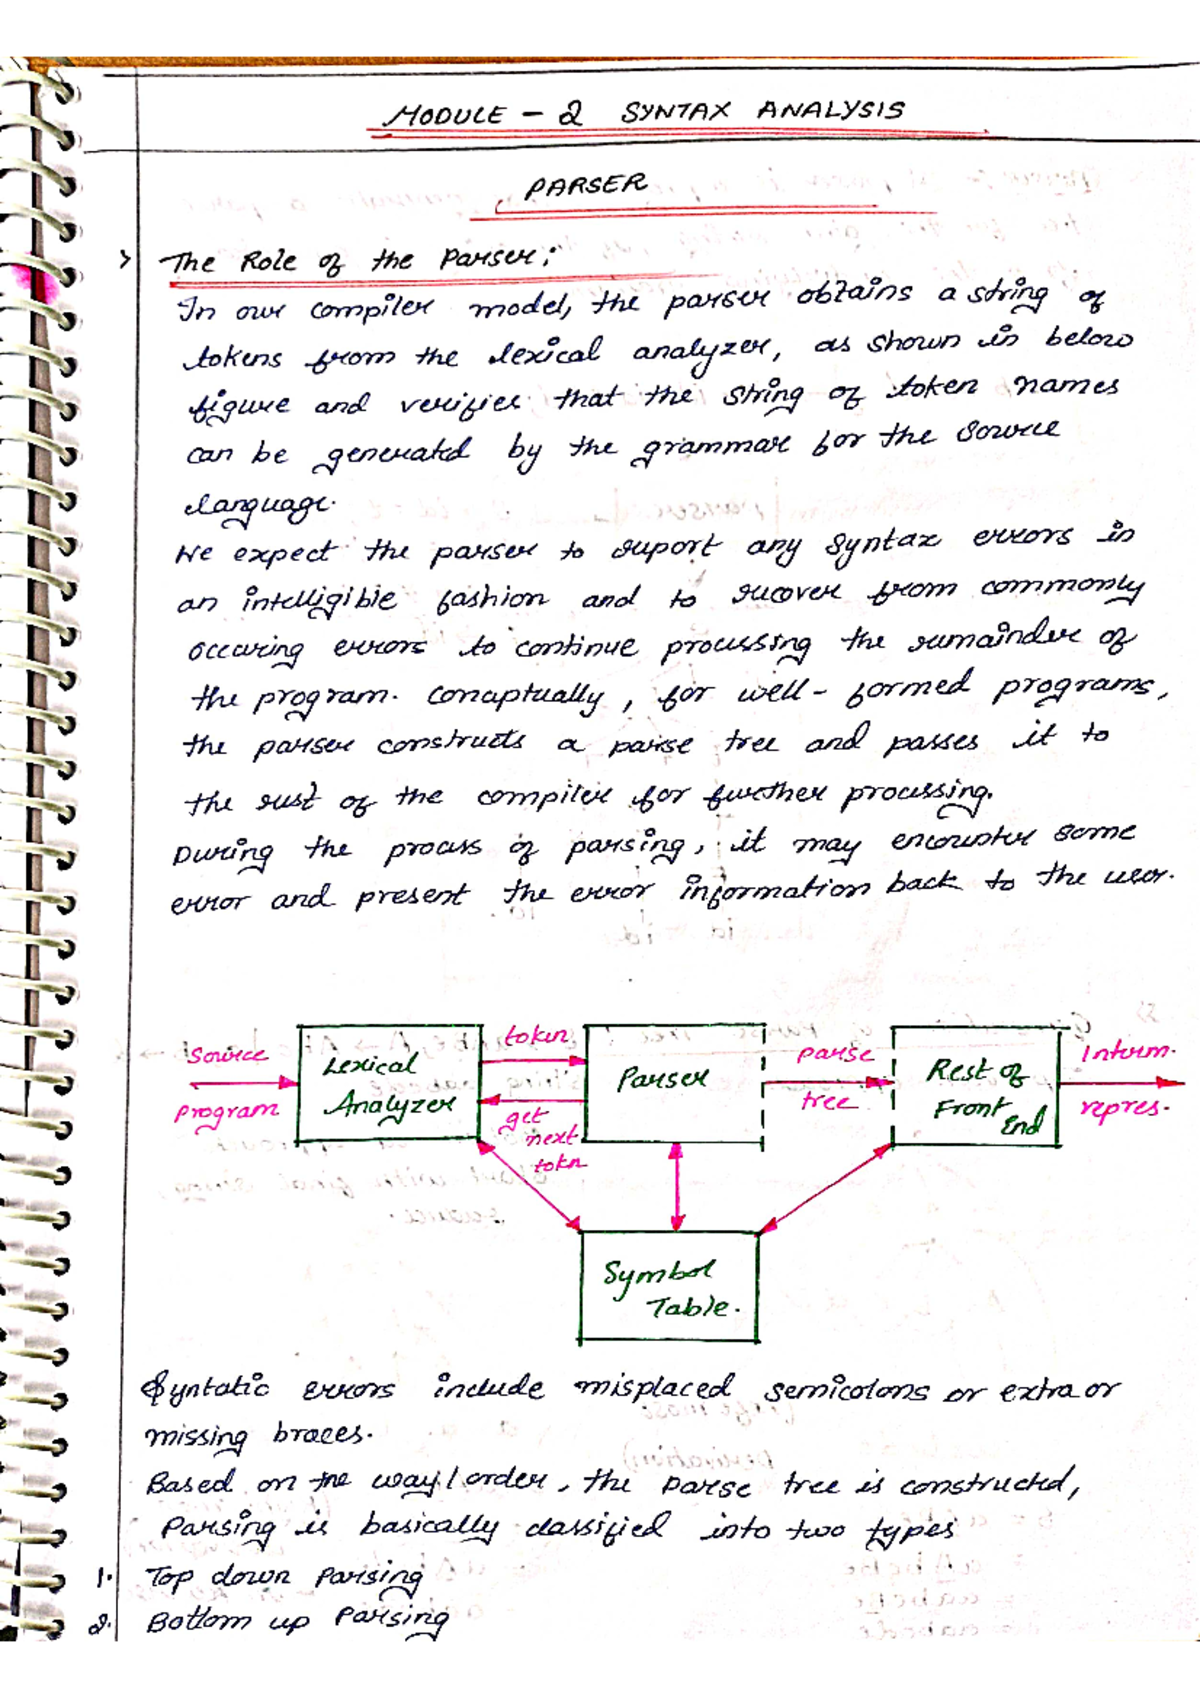 MODULE - 2 SYNTAX ANALYSIS
PARSER
> The Role of the Parser:
In our compiler model, the parser obtains a string of
tokens from the lexical analyzer, as shown in below
figure and verifies that the string of token names
can be generated by the grammar for the source
language.
We expect the parser to report any syntax errors in
an intelligible fashion and to recover from commonly
occuring errors to continue processing the remainder of
the program. Conceptually, for well-formed programs,
the parser constructs a parse tree and passes it to
the rest of the compiler for further processing.
During the process of parsing, it may encounter some
error and present the error information back to the user.
source
program
Lexical
Analyzer
token
get
next
tokn
Parser
parse
tree
Rest of
Front
End
Interm.
repres.
Symbol
Table.
Syntatic errors include misplaced semicolons or extra or
missing braces.
Based on the way/order, the parse tree is constructed,
Parsing is basically classified into two types
1. Top down Parsing
2. Bottom up Parsing